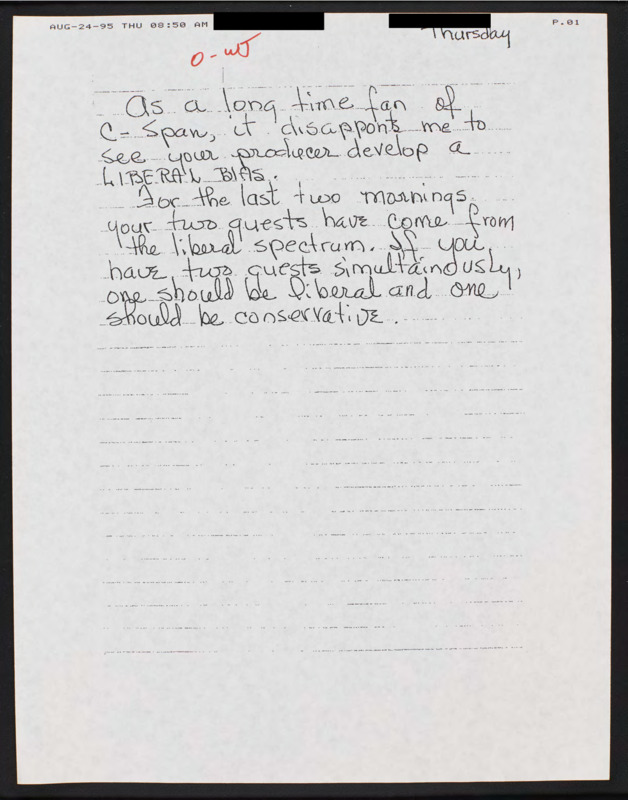 AUG-24-95 THU 08:50 AM
P.01
Thursday
O-WJ
As a long time fan of
C-Span, it disapponts me to
see your producer develop a
LIBERAL BIAS.
For the last two mornings
your two guests have come from
the liberal spectrum. If you
have two guests simultaindusly,
one should be liberal and one
should be conservative.